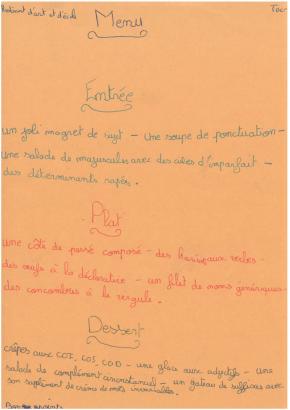 Menu
Entrée
un joli magret de sujet - une soupe de ponctuation -
une salade de majuscules avec des cubes d'imparfait -
des déterminants rapés.
Plat
une côte de passé composé - des haricots verbes -
des œufs à la déclarative - un filet de noms génériques -
des concombres à la virgule.
Dessert
crêpes aux COI, COS, COD - une glace aux adjectifs - une
salade de complément circonstanciel - un gateau de suffixes avec
son suplément de crème de mots invariables.